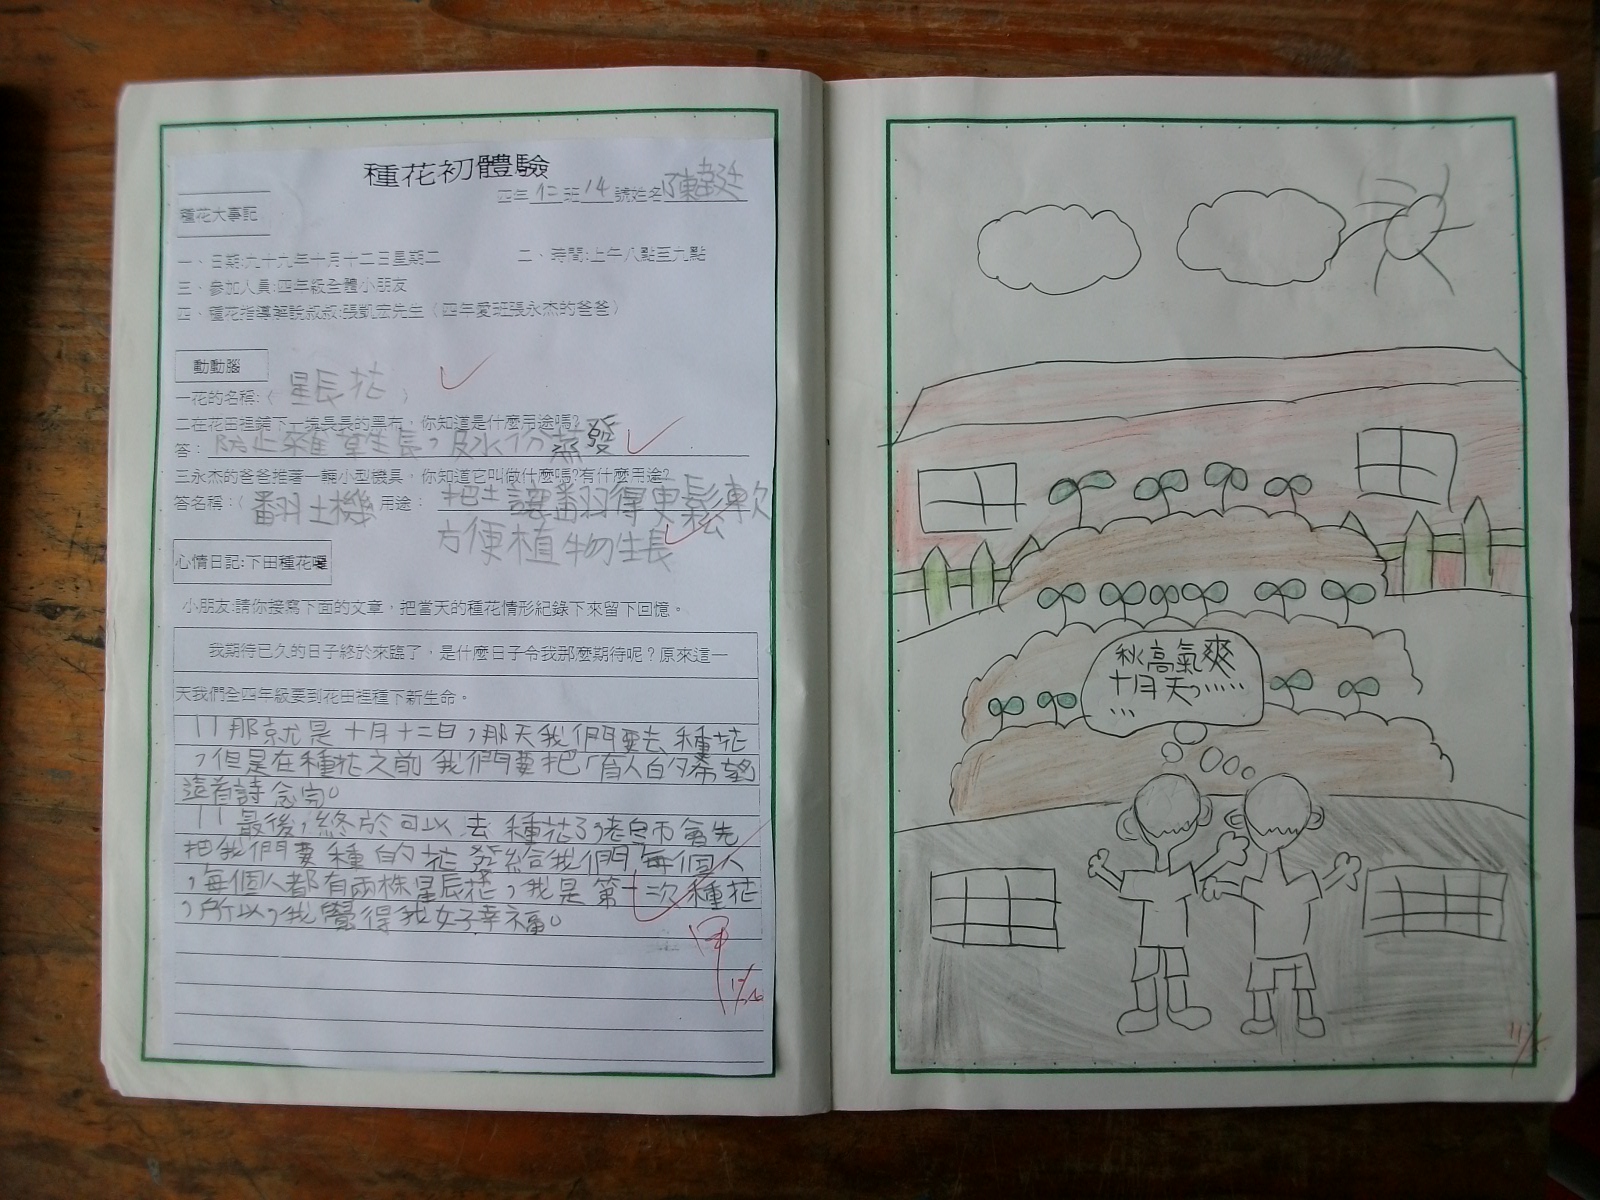 種花初體驗
四年仁班14號姓名陳韋廷
種花大事記
一、日期:九十九年十月十二日星期二 二、時間:上午八點至九點
三、參加人員:四年級全體小朋友
四、種花指導解說叔叔:張凱宏先生（四年愛班張永杰的爸爸）
動動腦
一花的名稱:（星辰花）
二在花田裡鋪下一塊長長的黑布，你知道是什麼用途嗎?
答：防止雜草生長，及水份蒸發
三永杰的爸爸推著一輛小型機具，你知道它叫做什麼嗎?有什麼用途?
答名稱：（翻土機 用途：把土讓翻得更鬆軟
方便植物生長
心情日記:下田種花囉
小朋友:請你接寫下面的文章，把當天的種花情形紀錄下來留下回憶。
我期待已久的日子終於來臨了，是什麼日子令我那麼期待呢？原來這一
天我們全四年級要到花田裡種下新生命。
那就是十月十二日，那天我們要去種花
，但是在種花之前我們要把「有人的夕希望
這首詩念完。
最後，終於可以去種花了，老師會先
把我們要種的花發給我們每個人
，每個人都有兩株星辰花，我是第一次種花
，所以，我覺得我好幸福。
甲
秋高氣爽
十月天，……
…